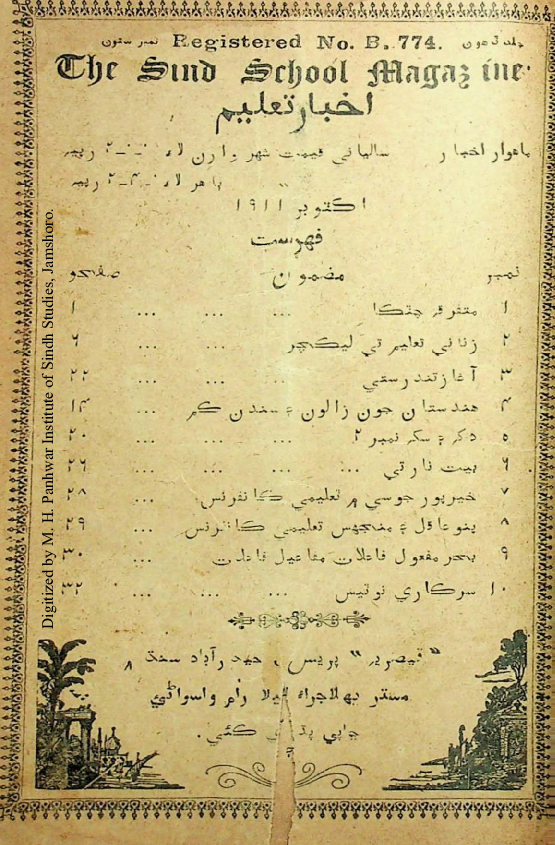 جلد ٦ هون Registered No. B. 774. نمبر ستون
The Sind School Magazine.
اخبار تعليم
ماهوار اخبار ساليانی قيمت شهر وارن لاءِ ٠-٠-٢ رپيه
ٻاهر لاءِ ٠-٤-٢ رپيه
اڪتوبر ١٩١١
فهرست
نمبر مضمون صفحو
١ متفرقہ چٽڪا ... ... ... ١
٢ زناني تعليم تي ليڪچر ... ... ٦
٣ آغاز تندرستي ... ... ...
٤ هندستان جون زالون ۽ سندن ڪم ... ١٤
٥ دکہ ۽ سکہ نمبر ٢ ... ... ... ٢٠
٦ بيت نارتي ... ... ... ... ٢٦
٧ خيرپور جوسي ۾ تعليمي ڪانفرنس ... ٢٨
٨ پنوعاقل ۽ منجهس تعليمي ڪانفرنس ... ٢٩
٩ بحر مفعول فاعلات مفاعيل فاعلات ... ٣٠
١٠ سرڪاري نوٽيس ... ... ... ٣٢
"قيصريہ" پريس، حيدرآباد سنڌ ۾
مسٽر ڀهلاجراءِ ليلارام واسواڻي
ڇاپي پڌري ڪئي.
Digitized by M. H. Panhwar Institute of Sindh Studies, Jamshoro.